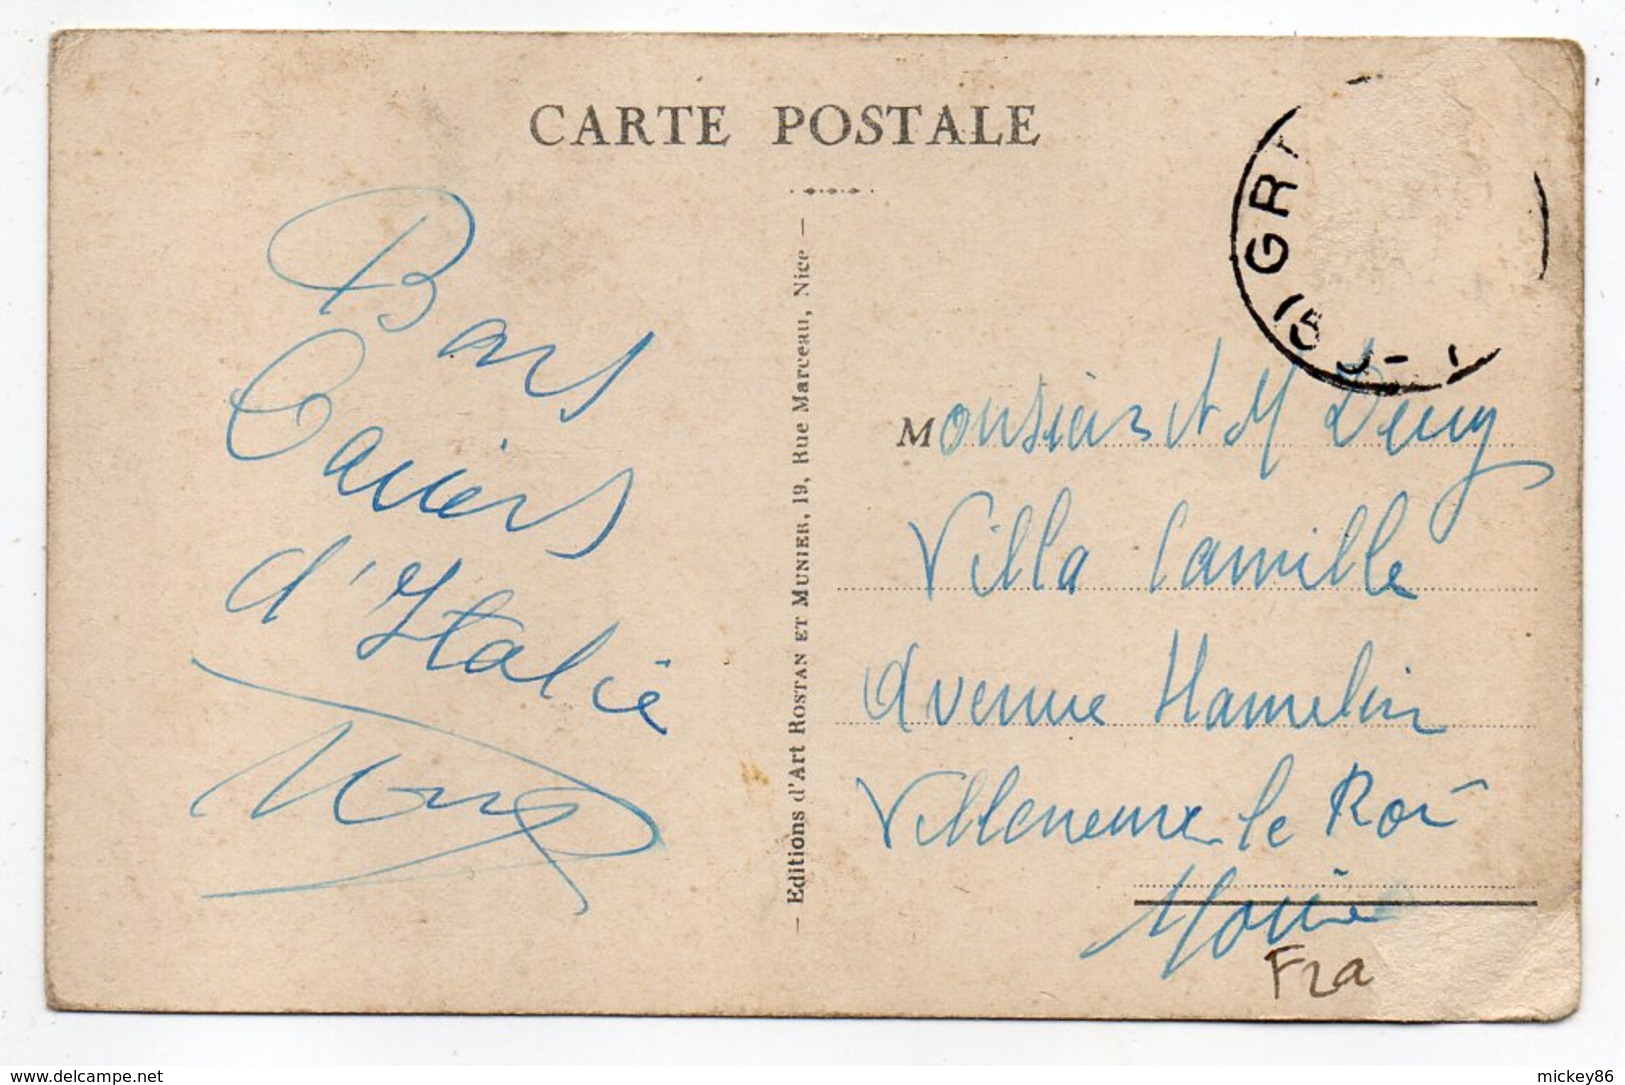 CARTE POSTALE
Bons
Baisers
d'Italie
— Editions d'Art ROSTAN ET MUNIER, 19, Rue Marceau, Nice —
GR
(5
Monsieur et M
Villa Camille
Avenue Hamelin
Villeneuve le Roi
F2a
www.delcampe.net
mickey86